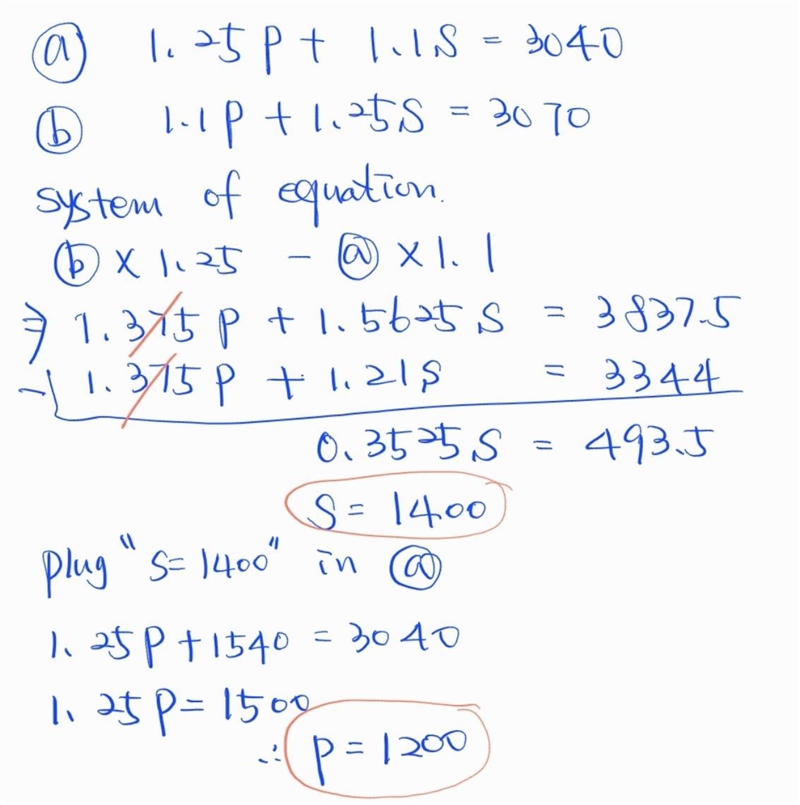 ⓐ 1.25P + 1.1S = 3040
ⓑ 1.1P + 1.25S = 3070
system of equation.
ⓑ × 1.25 - ⓐ × 1.1
⇒ 1.375P + 1.5625S = 3837.5
-) 1.375P + 1.21S = 3344
0.3525S = 493.5
S = 1400
plug "S=1400" in ⓐ
1.25P + 1540 = 3040
1.25P = 1500
∴ P = 1200